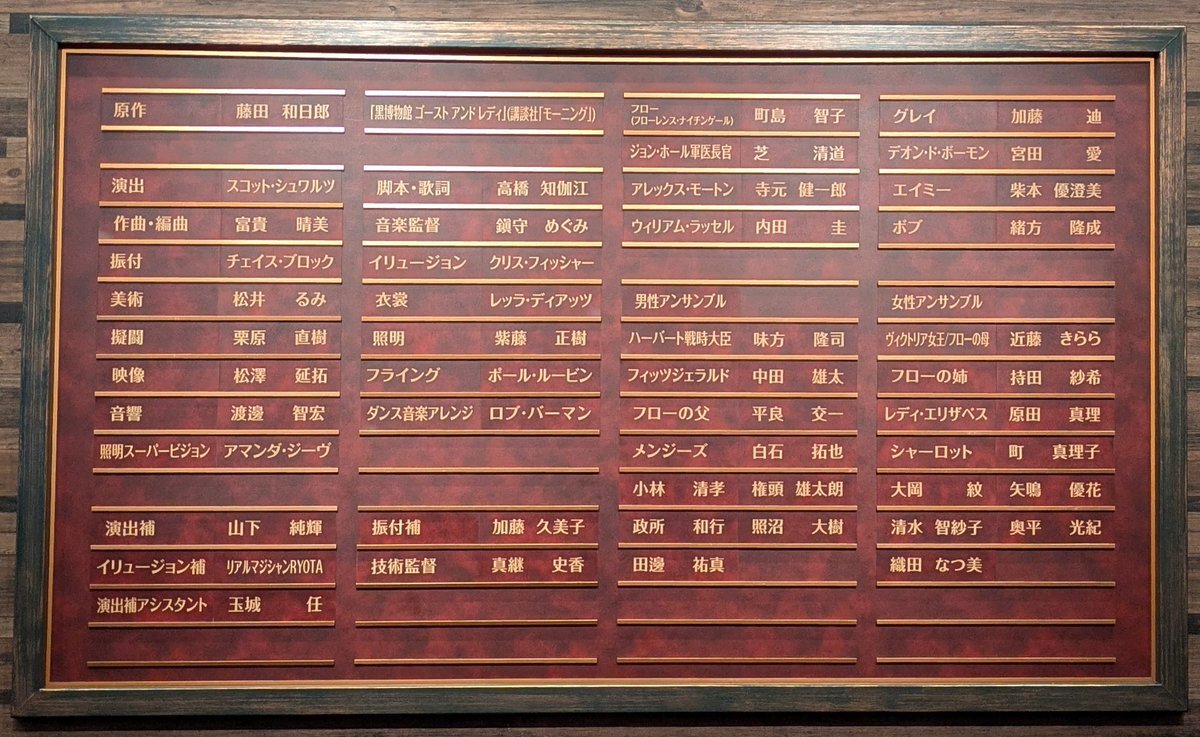 原作 藤田 和日郎 「黒博物館 ゴースト アンド レディ」(講談社「モーニング」)
演出 スコット・シュワルツ 脚本・歌詞 高橋 知伽江
作曲・編曲 富貴 晴美 音楽監督 鎭守 めぐみ
振付 チェイス・ブロック イリュージョン クリス・フィッシャー
美術 松井 るみ 衣裳 レッラ・ディアッツ
擬闘 栗原 直樹 照明 紫藤 正樹
映像 松澤 延拓 フライング ポール・ルービン
音響 渡邊 智宏 ダンス音楽アレンジ ロブ・バーマン
照明スーパービジョン アマンダ・ジーヴ
演出補 山下 純輝 振付補 加藤 久美子
イリュージョン補 リアルマジシャンRYOTA 技術監督 真継 史香
演出補アシスタント 玉城 任
フロー
(フローレンス・ナイチンゲール) 町島 智子 グレイ 加藤 迪
ジョン・ホール軍医長官 芝 清道 デオン・ド・ボーモン 宮田 愛
アレックス・モートン 寺元 健一郎 エイミー 柴本 優澄美
ウィリアム・ラッセル 内田 圭 ボブ 緒方 隆成
男性アンサンブル 女性アンサンブル
ハーバート戦時大臣 味方 隆司 ヴィクトリア女王/フローの母 近藤 きらら
フィッツジェラルド 中田 雄太 フローの姉 持田 紗希
フローの父 平良 交一 レディ・エリザベス 原田 真理
メンジーズ 白石 拓也 シャーロット 町 真理子
小林 清孝 権頭 雄太朗 大岡 紋 矢鳴 優花
政所 和行 照沼 大樹 清水 智紗子 奥平 光紀
田邊 祐真 織田 なつ美